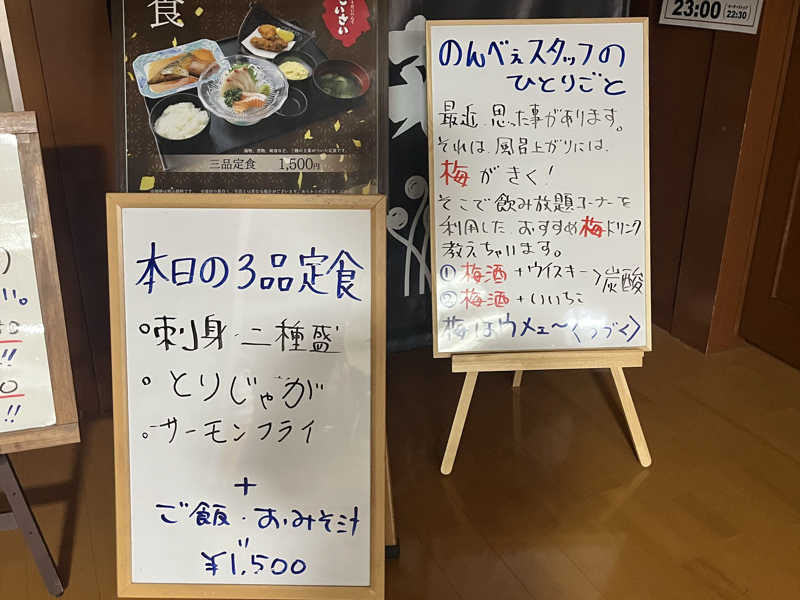 食
三品定食 1,500円
23:00
22:30
のんべぇスタッフの
ひとりごと
最近、思った事があります。
それは、風呂上がりには、
梅がきく!
そこで飲み放題コーナーを
利用した、おすすめ梅ドリンク
教えちゃいます。
①梅酒+ウイスキー>炭酸
②梅酒+いいちこ
梅はウメェ〜<つづく>
本日の3品定食
刺身二種盛
とりじゃが
サーモンフライ
+
ご飯・おみそ汁
¥1,500